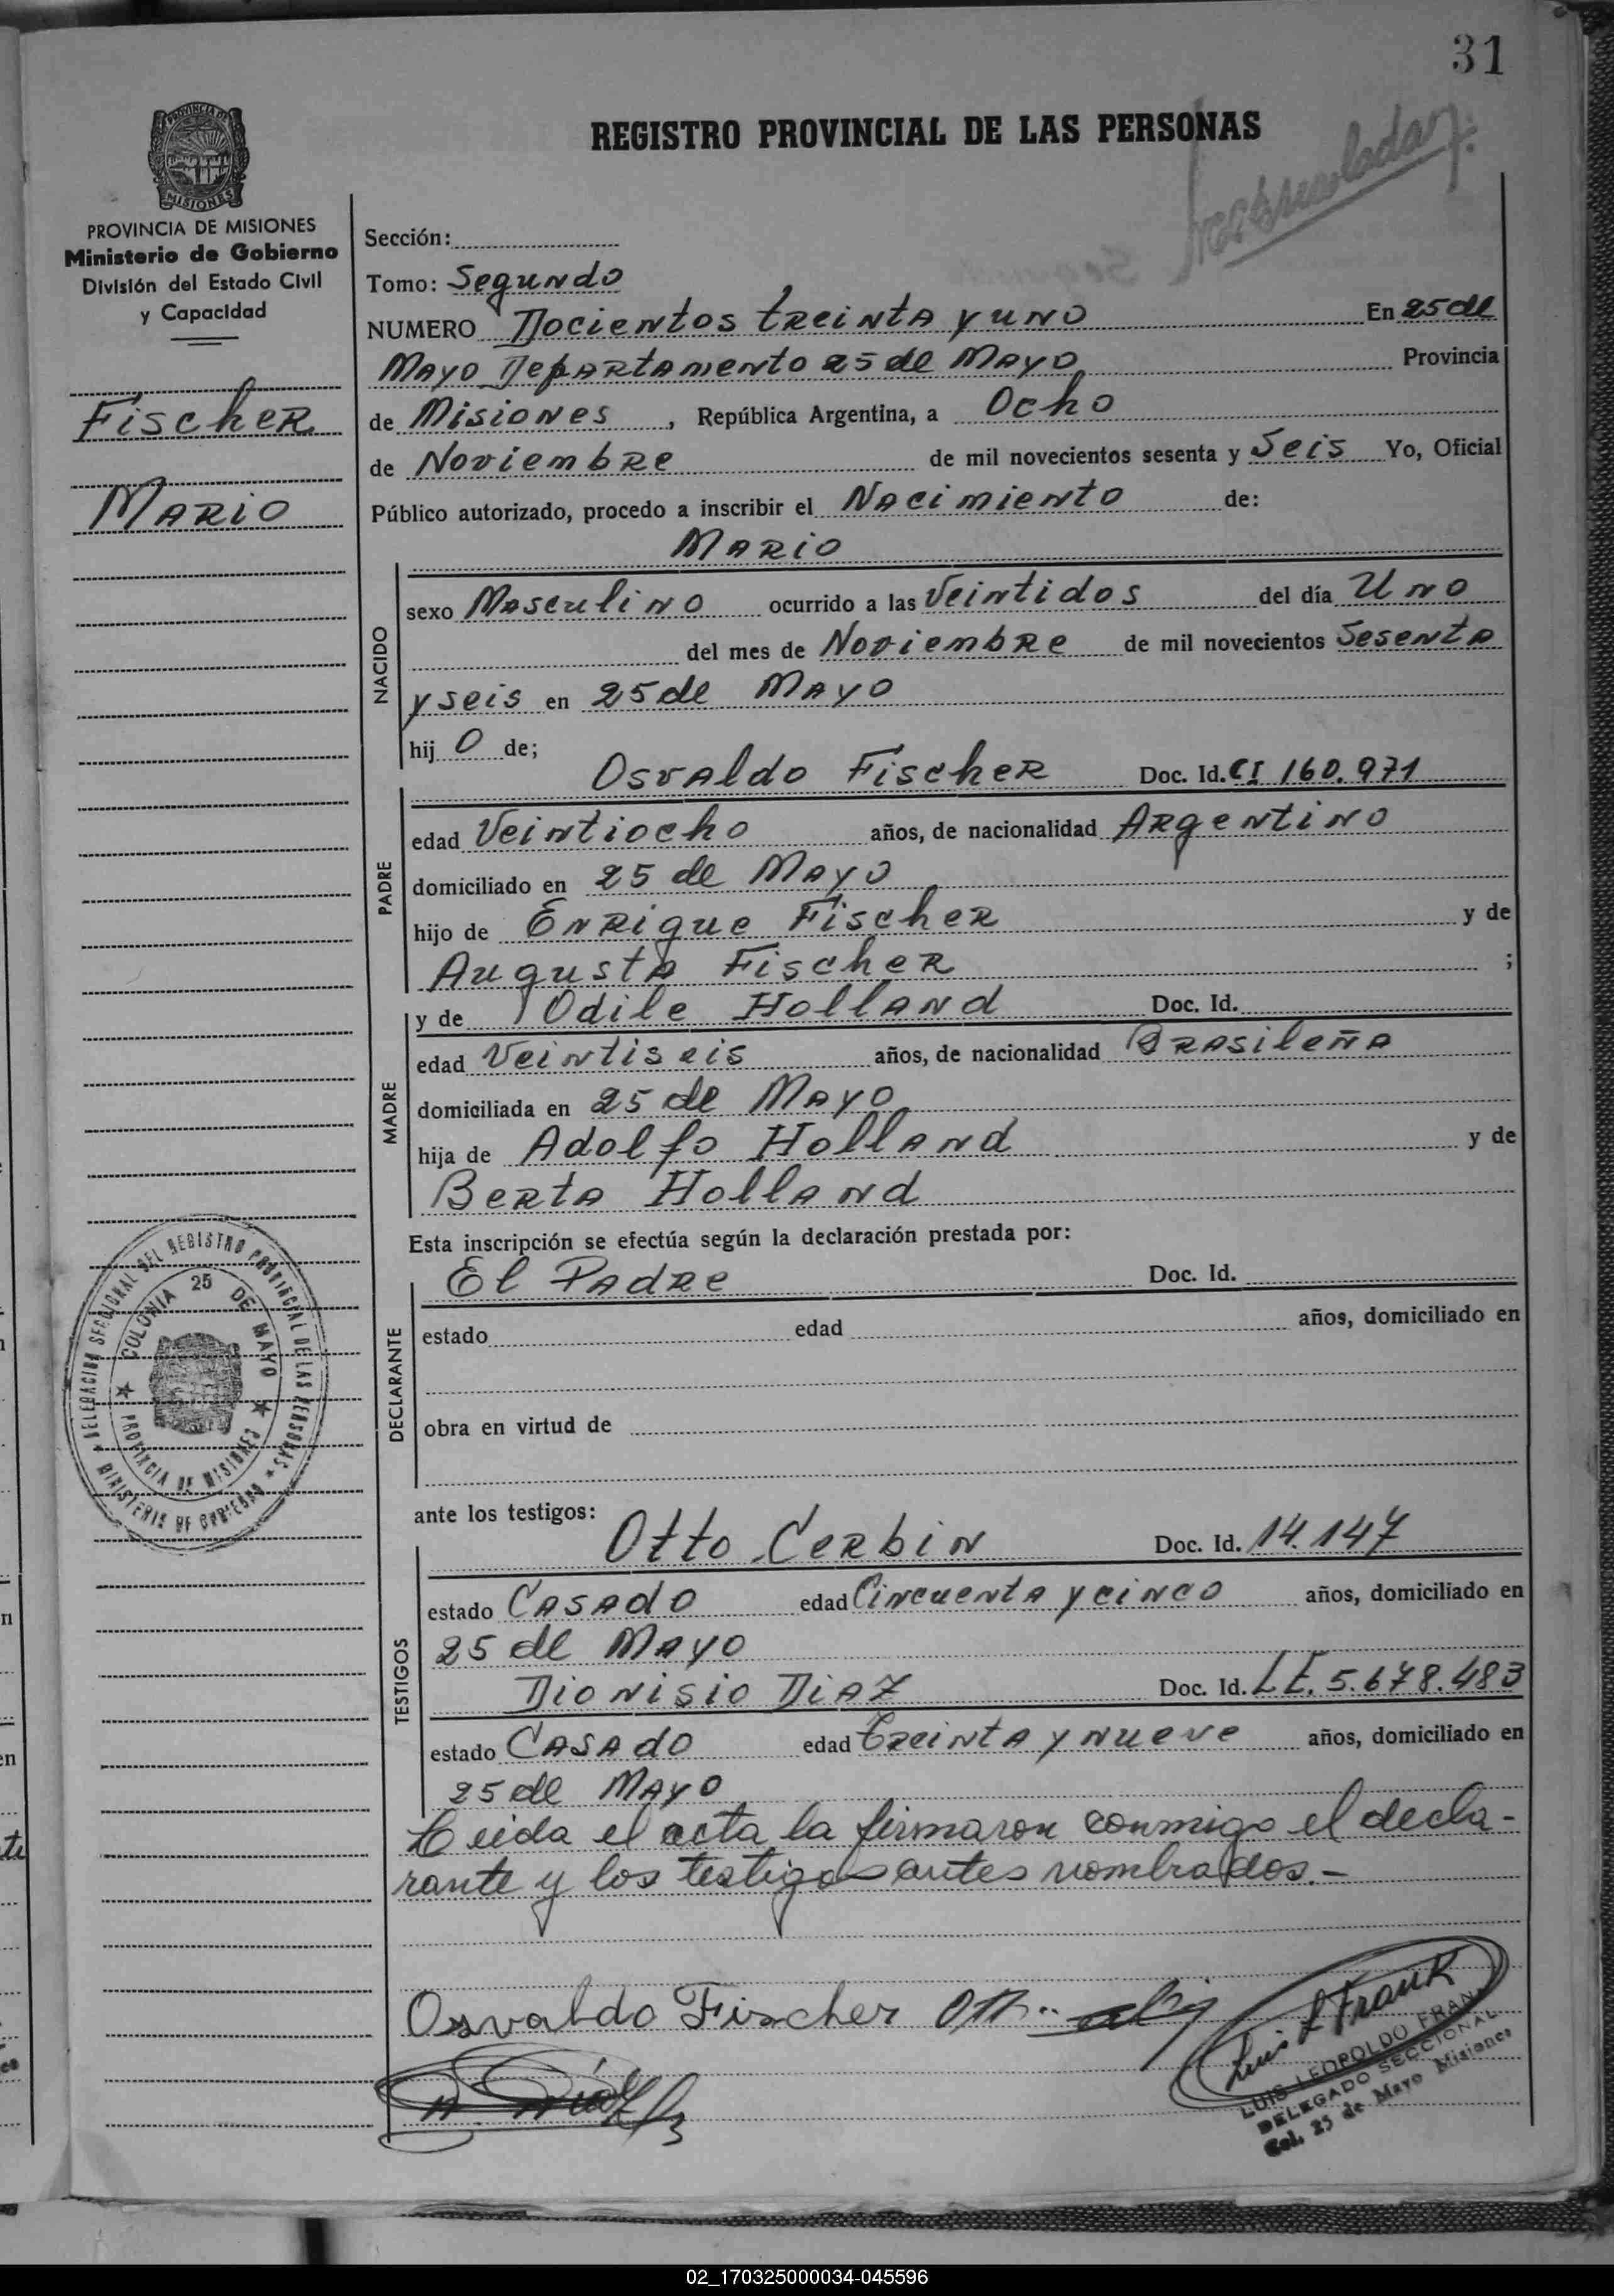 31
REGISTRO PROVINCIAL DE LAS PERSONAS
PROVINCIA DE MISIONES
MISIONES
PROVINCIA DE MISIONES
Ministerio de Gobierno
División del Estado Civil
y Capacidad
Fischer
Mario
Sección:
Tomo: Segundo
NUMERO Docientos treinta y uno En 25 de
Mayo Departamento 25 de Mayo Provincia
de Misiones, República Argentina, a Ocho
de Noviembre de mil novecientos sesenta y Seis Yo, Oficial
Público autorizado, procedo a inscribir el Nacimiento de:
Mario
NACIDO
sexo Masculino ocurrido a las Veintidos del día Uno
del mes de Noviembre de mil novecientos Sesenta
y seis en 25 de Mayo
hij o de;
Osvaldo Fischer Doc. Id. CI 160.971
PADRE
edad Veintiocho años, de nacionalidad Argentino
domiciliado en 25 de Mayo
hijo de Enrique Fischer y de
Augusta Fischer ;
y de Odile Holland Doc. Id.
MADRE
edad Veintiseis años, de nacionalidad Brasileña
domiciliada en 25 de Mayo
hija de Adolfo Holland y de
Berta Holland
Esta inscripción se efectúa según la declaración prestada por:
El Padre Doc. Id.
DECLARANTE
estado edad años, domiciliado en
obra en virtud de
DELEGACION SECCIONAL DEL REGISTRO PROVINCIAL DE LAS PERSONAS
MINISTERIO DE GOBIERNO
COLONIA 25 DE MAYO
PROVINCIA DE MISIONES
ante los testigos:
Otto Cerbin Doc. Id. 14.147
TESTIGOS
estado Casado edad Cincuenta y cinco años, domiciliado en
25 de Mayo
Dionisio Diaz Doc. Id. LE. 5.678.483
estado Casado edad treinta y nueve años, domiciliado en
25 de Mayo
Leida el acta la firmaron conmigo el decla-
rante y los testigos antes nombrados.-
Osvaldo Fischer
Luis L Frank
LUIS LEOPOLDO FRANK
DELEGADO SECCIONAL
Col. 25 de Mayo Misiones
02_170325000034-045596